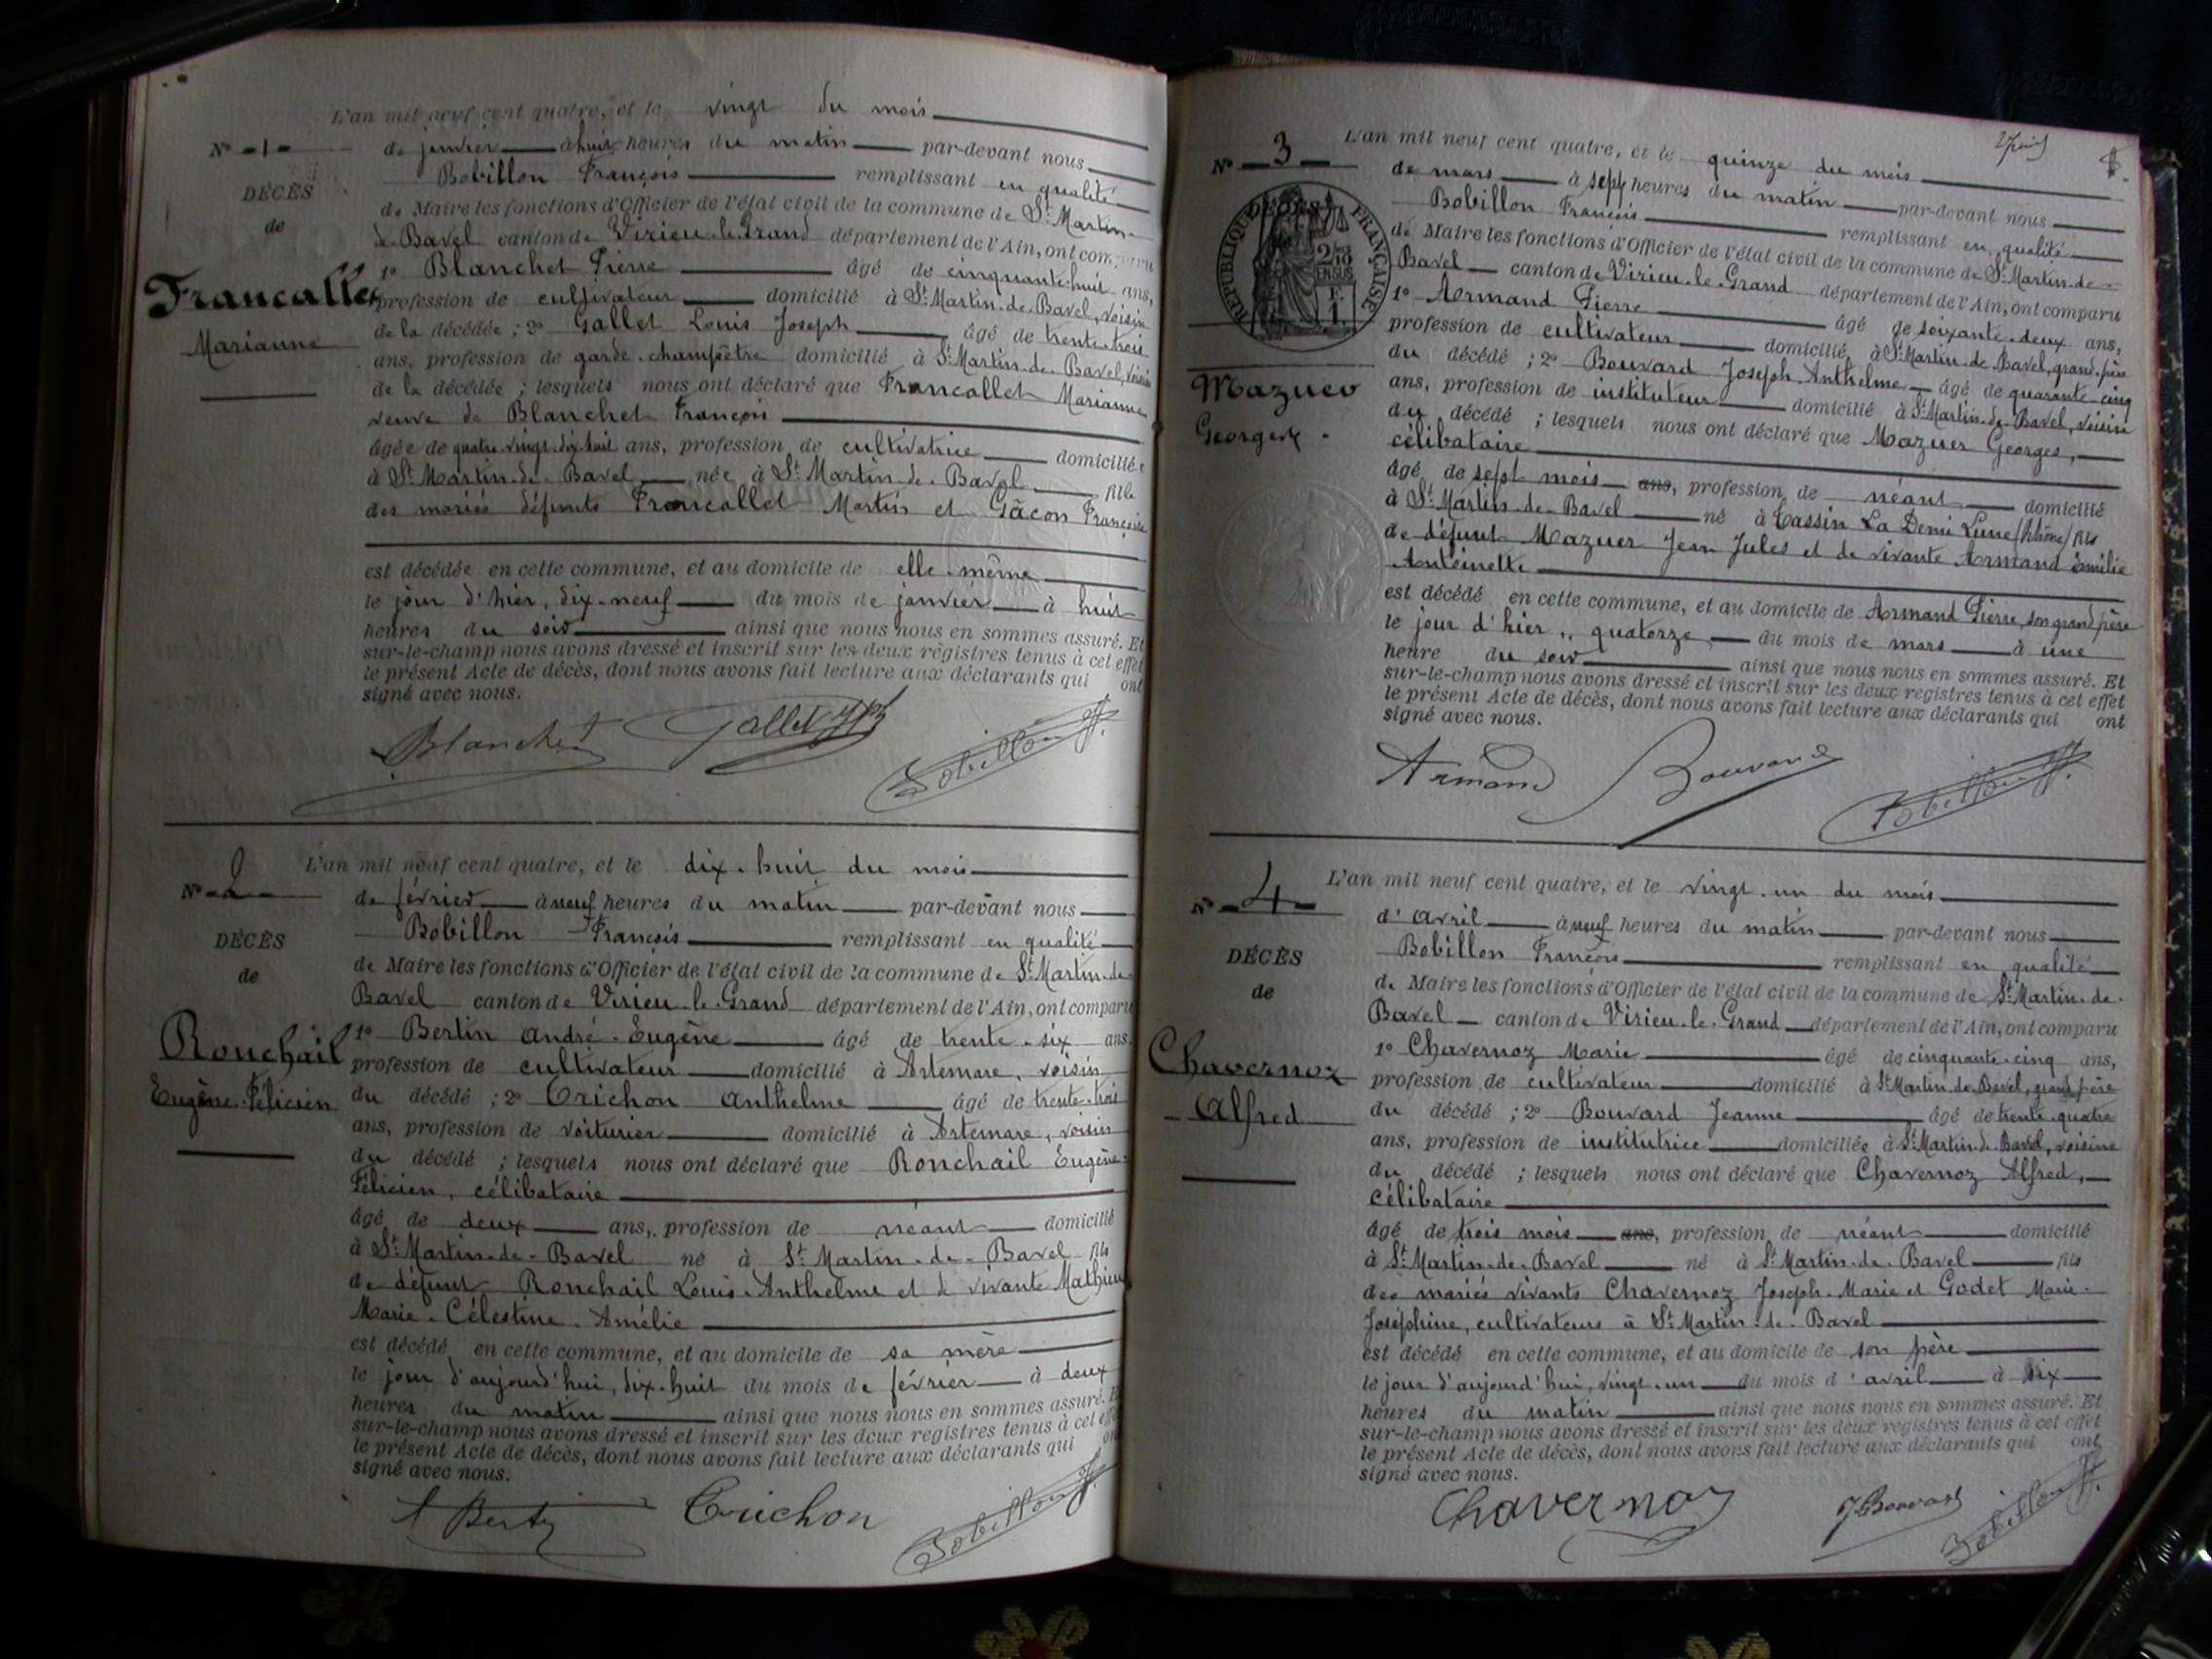 L'an mil neuf cent quatre, et le vingt du mois
N° 1
de janvier à huit heures du matin par-devant nous
DÉCÈS
Bobillon François remplissant en qualité
de
de Maire les fonctions d'Officier de l'état civil de la commune de St Martin-
de Bavel canton de Virieu-le-Grand département de l'Ain, ont comparu
1° Blanchet Pierre âgé de cinquante-huit ans,
Francallet
profession de cultivateur domicilié à St Martin-de-Bavel, voisin
de la décédée ; 2° Gallet Louis Joseph âgé de trente-trois
Marianne
ans, profession de garde-champêtre domicilié à St Martin-de-Bavel, voisin
de la décédée ; lesquels nous ont déclaré que Francallet Marianne
veuve de Blanchet François
âgée de quatre-vingt-dix-huit ans, profession de cultivatrice domiciliée
à St Martin-de-Bavel née à St Martin-de-Bavel fille
des mariés défunts Francallet Martin et Gâcon Françoise
est décédée en cette commune, et au domicile de elle-même
le jour d'hier, dix-neuf du mois de janvier à huit
heures du soir ainsi que nous nous en sommes assuré. Et
sur-le-champ nous avons dressé et inscrit sur les deux registres tenus à cet effet
le présent Acte de décès, dont nous avons fait lecture aux déclarants qui ont
signé avec nous.
Blanchet Gallet Jph Bobillon F.
L'an mil neuf cent quatre, et le dix-huit du mois
N° 2
de février à neuf heures du matin par-devant nous
DÉCÈS
Bobillon François remplissant en qualité
de
de Maire les fonctions d'Officier de l'état civil de la commune de St Martin-de-
Bavel canton de Virieu-le-Grand département de l'Ain, ont comparu
1° Bertin André-Eugène âgé de trente-six ans,
Ronchail
profession de cultivateur domicilié à Artemare, voisin
Eugène-Félicien
du décédé ; 2° Trichon Anthelme âgé de trente-trois
ans, profession de voiturier domicilié à Artemare, voisin
du décédé ; lesquels nous ont déclaré que Ronchail Eugène-
Félicien, célibataire
âgé de deux ans, profession de néant domicilié
à St Martin-de-Bavel né à St Martin-de-Bavel fils
de défunt Ronchail Louis-Anthelme et de vivante Mathieu
Marie-Célestine-Amélie
est décédé en cette commune, et au domicile de sa mère
le jour d'aujourd'hui, dix-huit du mois de février à deux
heures du matin ainsi que nous nous en sommes assuré. Et
sur-le-champ nous avons dressé et inscrit sur les deux registres tenus à cet effet
le présent Acte de décès, dont nous avons fait lecture aux déclarants qui ont
signé avec nous.
A Bertin Trichon Bobillon F.
L'an mil neuf cent quatre, et le quinze du mois
N° 3
de mars à sept heures du matin par-devant nous
DÉCÈS
Bobillon François remplissant en qualité
RÉPUBLIQUE FRANÇAISE
2/10 EN SUS
de Maire les fonctions d'Officier de l'état civil de la commune de St Martin-de-
Bavel canton de Virieu-le-Grand département de l'Ain, ont comparu
1° Armand Pierre âgé de soixante-deux ans,
profession de cultivateur domicilié à St Martin-de-Bavel, grand-père
du décédé ; 2° Bouvard Joseph-Anthelme âgé de quarante-cinq
Mazuer
ans, profession de instituteur domicilié à St Martin-de-Bavel, voisin
Georges
du décédé ; lesquels nous ont déclaré que Mazuer Georges,
célibataire
âgé de sept mois ans, profession de néant domicilié
à St Martin-de-Bavel né à Tassin La Demi Lune (Rhône) fils
de défunt Mazuer Jean Jules et de vivante Armand Émilie
Antoinette
est décédé en cette commune, et au domicile de Armand Pierre, son grand-père
le jour d'hier, quatorze du mois de mars à une
heure du soir ainsi que nous nous en sommes assuré. Et
sur-le-champ nous avons dressé et inscrit sur les deux registres tenus à cet effet
le présent Acte de décès, dont nous avons fait lecture aux déclarants qui ont
signé avec nous.
Armand Bouvard Bobillon F.
L'an mil neuf cent quatre, et le vingt-un du mois
N° 4
d'avril à neuf heures du matin par-devant nous
DÉCÈS
Bobillon François remplissant en qualité
de
de Maire les fonctions d'Officier de l'état civil de la commune de St Martin-de-
Bavel canton de Virieu-le-Grand département de l'Ain, ont comparu
1° Chavernoz Marie âgé de cinquante-cinq ans,
Chavernoz
profession de cultivateur domicilié à St Martin-de-Bavel, grand-père
Alfred
du décédé ; 2° Bouvard Jeanne âgé de trente-quatre
ans, profession de institutrice domiciliée à St Martin-de-Bavel, voisine
du décédé ; lesquels nous ont déclaré que Chavernoz Alfred,
célibataire
âgé de trois mois ans, profession de néant domicilié
à St Martin-de-Bavel né à St Martin-de-Bavel fils
des mariés vivants Chavernoz Joseph-Marie et Godet Marie-
Joséphine, cultivateurs à St Martin-de-Bavel
est décédé en cette commune, et au domicile de son père
le jour d'aujourd'hui, vingt-un du mois d'avril à six
heures du matin ainsi que nous nous en sommes assuré. Et
sur-le-champ nous avons dressé et inscrit sur les deux registres tenus à cet effet
le présent Acte de décès, dont nous avons fait lecture aux déclarants qui ont
signé avec nous.
Chavernoz J Bouvard Bobillon F.